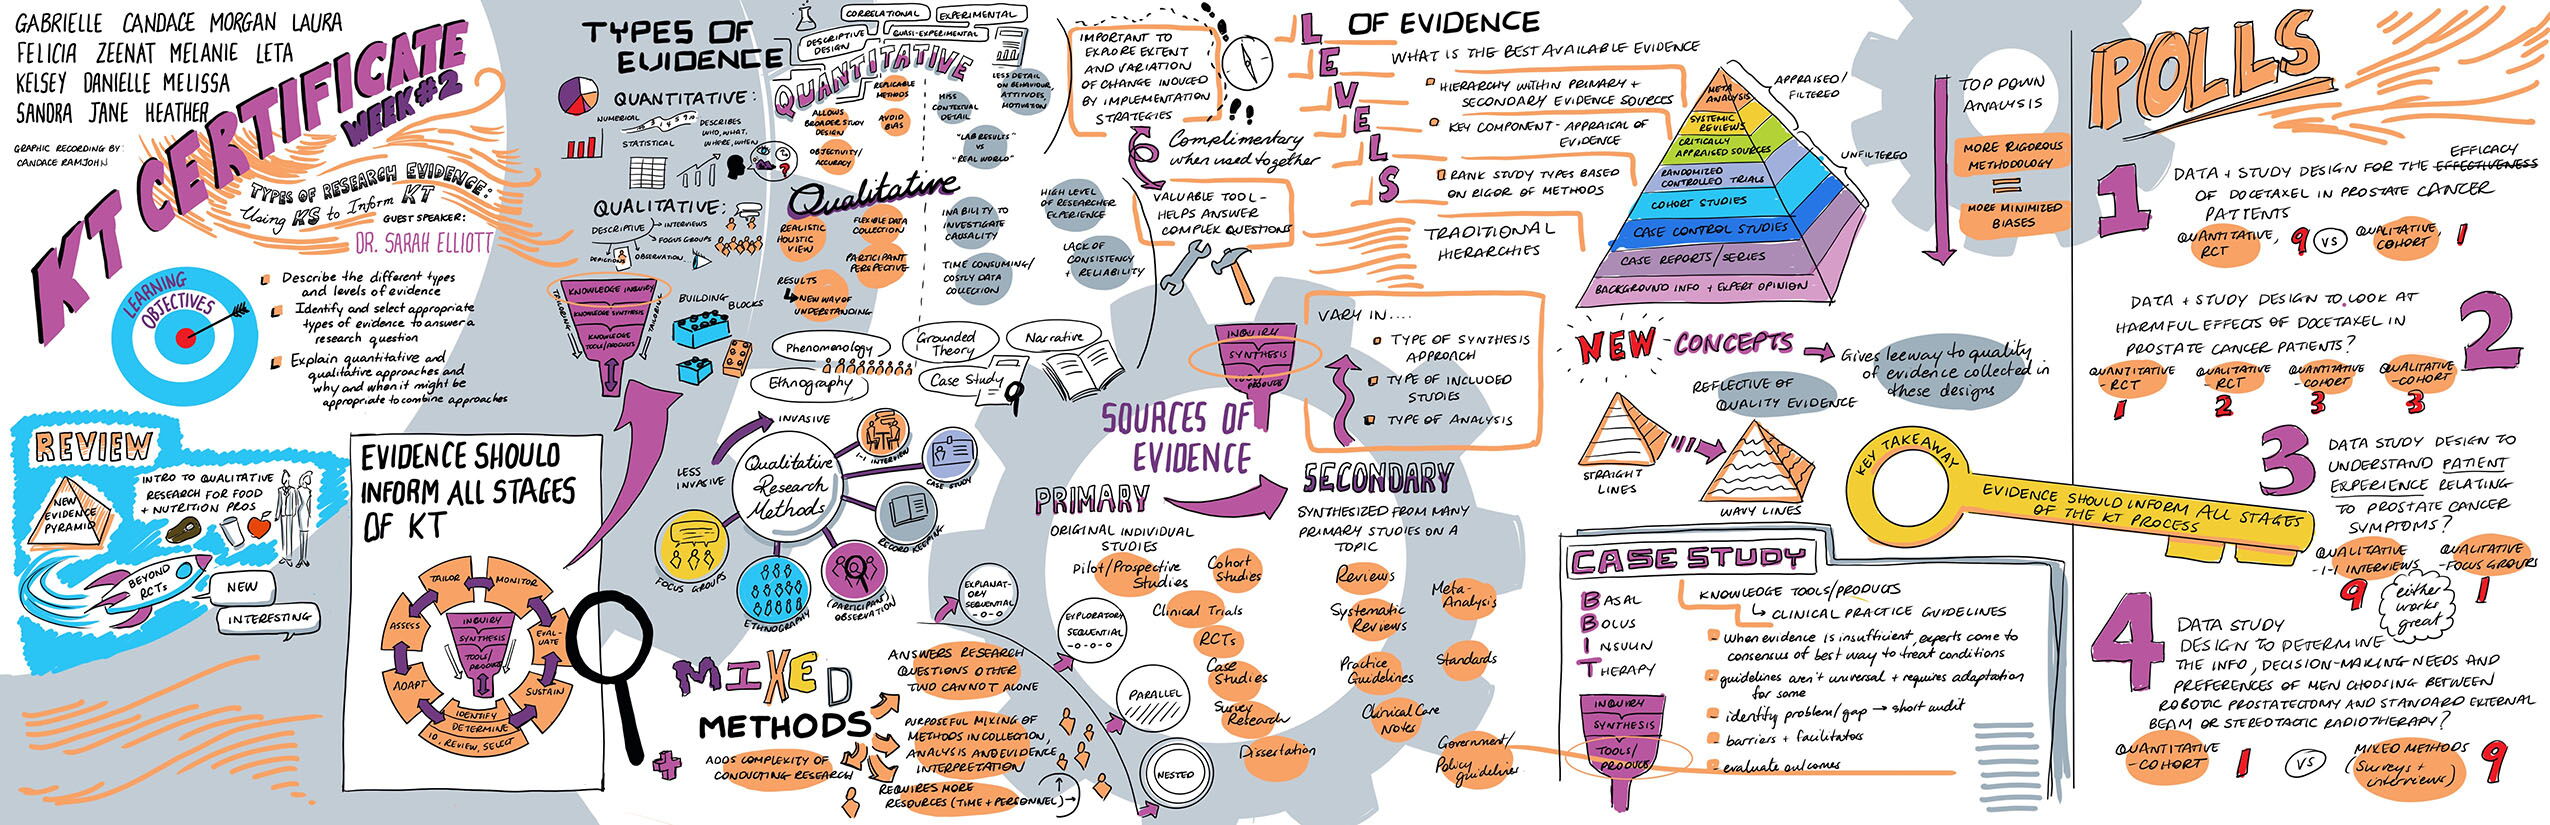 GABRIELLE CANDACE MORGAN LAURA
FELICIA ZEENAT MELANIE LETA
KELSEY DANIELLE MELISSA
SANDRA JANE HEATHER
GRAPHIC RECORDING BY:
CANDACE RAMJOHN
KT CERTIFICATE
WEEK #2
TYPES OF RESEARCH EVIDENCE:
Using KS to Inform KT
GUEST SPEAKER:
DR. SARAH ELLIOTT
LEARNING
OBJECTIVES
Describe the different types
and levels of evidence
Identify and select appropriate
types of evidence to answer a
research question
Explain quantitative and
qualitative approaches and
why and when it might be
appropriate to combine approaches
REVIEW
NEW
EVIDENCE
PYRAMID
INTRO TO QUALITATIVE
RESEARCH FOR FOOD
+ NUTRITION PROS
BEYOND
RCTs
NEW
INTERESTING
EVIDENCE SHOULD
INFORM ALL STAGES
OF KT
TAILOR
MONITOR
ASSESS
EVAL-
UATE
ADAPT
SUSTAIN
INQUIRY
SYNTHESIS
TOOLS/
PRODUCTS
IDENTIFY
DETERMINE
ID, REVIEW, SELECT
TYPES OF
EVIDENCE
QUANTITATIVE:
NUMERICAL
STATISTICAL
DESCRIBES
WHO, WHAT,
WHERE, WHEN
QUALITATIVE:
DESCRIPTIVE
INTERVIEWS
FOCUS GROUPS
DEPICTIONS
OBSERVATION...
KNOWLEDGE INQUIRY
KNOWLEDGE SYNTHESIS
KNOWLEDGE
TOOLS/PRODUCTS
TAILORING
TAILORING
BUILDING
BLOCKS
CORRELATIONAL
EXPERIMENTAL
DESCRIPTIVE
DESIGN
QUASI-EXPERIMENTAL
QUANTITATIVE
REPLICABLE
METHODS
ALLOWS
BROADER STUDY
DESIGN
AVOID
BIAS
OBJECTIVITY/
ACCURACY
MISS
CONTEXTUAL
DETAIL
LESS DETAIL
ON BEHAVIOUR,
ATTITUDES,
MOTIVATION
"LAB RESULTS"
VS
"REAL WORLD"
Qualitative
REALISTIC
HOLISTIC
VIEW
FLEXIBLE DATA
COLLECTION
PARTICIPANT
PERSPECTIVE
RESULTS
NEW WAY OF
UNDERSTANDING
INABILITY TO
INVESTIGATE
CAUSALITY
TIME CONSUMING/
COSTLY DATA
COLLECTION
HIGH LEVEL
OF RESEARCHER
EXPERIENCE
LACK OF
CONSISTENCY
+ RELIABILITY
Phenomenology
Grounded
Theory
Narrative
Ethnography
Case Study
INVASIVE
LESS
INVASIVE
Qualitative
Research
Methods
1-1 INTERVIEW
CASE STUDY
RECORD KEEPING
(PARTICIPANT)
OBSERVATION
ETHNOGRAPHY
FOCUS GROUPS
MIXED
METHODS
ADDS COMPLEXITY OF
CONDUCTING RESEARCH
ANSWERS RESEARCH
QUESTIONS OTHER
TWO CANNOT ALONE
PURPOSEFUL MIXING OF
METHODS IN COLLECTION,
ANALYSIS AND EVIDENCE
INTERPRETATION
REQUIRES MORE
RESOURCES (TIME + PERSONNEL)
EXPLANAT-
ORY
SEQUENTIAL
EXPLORATORY
SEQUENTIAL
PARALLEL
NESTED
IMPORTANT TO
EXPLORE EXTENT
AND VARIATION
OF CHANGE INDUCED
BY IMPLEMENTATION
STRATEGIES
Complimentary
when used together
VALUABLE TOOL -
HELPS ANSWER
COMPLEX QUESTIONS
LEVELS
OF EVIDENCE
WHAT IS THE BEST AVAILABLE EVIDENCE
HIERARCHY WITHIN PRIMARY +
SECONDARY EVIDENCE SOURCES
KEY COMPONENT - APPRAISAL OF
EVIDENCE
RANK STUDY TYPES BASED
ON RIGOR OF METHODS
TRADITIONAL
HIERARCHIES
META
ANALYSIS
SYSTEMIC
REVIEWS
CRITICALLY
APPRAISED SOURCES
RANDOMIZED
CONTROLLED TRIALS
COHORT STUDIES
CASE CONTROL STUDIES
CASE REPORTS/SERIES
BACKGROUND INFO + EXPERT OPINION
APPRAISED/
FILTERED
UNFILTERED
TOP DOWN
ANALYSIS
MORE RIGOROUS
METHODOLOGY
=
MORE MINIMIZED
BIASES
INQUIRY
SYNTHESIS
TOOLS/
PRODUCTS
VARY IN....
TYPE OF SYNTHESIS
APPROACH
TYPE OF INCLUDED
STUDIES
TYPE OF ANALYSIS
SOURCES OF
EVIDENCE
PRIMARY
ORIGINAL INDIVIDUAL
STUDIES
Pilot/Prospective
Studies
Cohort
Studies
Clinical Trials
RCTs
Case
Studies
Survey
Research
Dissertation
SECONDARY
SYNTHESIZED FROM MANY
PRIMARY STUDIES ON A
TOPIC
Reviews
Meta-
Analysis
Systematic
Reviews
Practice
Guidelines
Standards
Clinical Care
Notes
Government/
Policy guidelines
NEW - CONCEPTS
Gives leeway to quality
of evidence collected in
these designs
REFLECTIVE OF
QUALITY EVIDENCE
STRAIGHT
LINES
WAVY LINES
KEY TAKEAWAY
EVIDENCE SHOULD INFORM ALL STAGES
OF THE KT PROCESS
CASE STUDY
BASAL
BOLUS
INSULIN
THERAPY
INQUIRY
SYNTHESIS
TOOLS/
PRODUCTS
KNOWLEDGE TOOLS/PRODUCTS
CLINICAL PRACTICE GUIDELINES
- When evidence is insufficient, experts come to
consensus of best way to treat conditions
- guidelines aren't universal + requires adaptation
for some
- identify problem/gap → short audit
- barriers + facilitators
- evaluate outcomes
POLLS
1
DATA + STUDY DESIGN FOR THE EFFECTIVENESS
EFFICACY
OF DOCETAXEL IN PROSTATE CANCER
PATIENTS
QUANTITATIVE,
RCT
9
VS
QUALITATIVE,
COHORT
1
2
DATA + STUDY DESIGN TO LOOK AT
HARMFUL EFFECTS OF DOCETAXEL IN
PROSTATE CANCER PATIENTS?
QUANTITATIVE
-RCT
1
QUALITATIVE
-RCT
2
QUANTITATIVE
-COHORT
3
QUALITATIVE
-COHORT
3
3
DATA STUDY DESIGN TO
UNDERSTAND PATIENT
EXPERIENCE RELATING
TO PROSTATE CANCER
SYMPTOMS?
QUALITATIVE
-1-1 INTERVIEWS
9
QUALITATIVE
-FOCUS GROUPS
1
either
works
great
4
DATA STUDY
DESIGN TO DETERMINE
THE INFO, DECISION-MAKING NEEDS AND
PREFERENCES OF MEN CHOOSING BETWEEN
ROBOTIC PROSTATECTOMY AND STANDARD EXTERNAL
BEAM OR STEREOTACTIC RADIOTHERAPY?
QUANTITATIVE
-COHORT
1
VS
MIXED METHODS
(Surveys +
interviews)
9